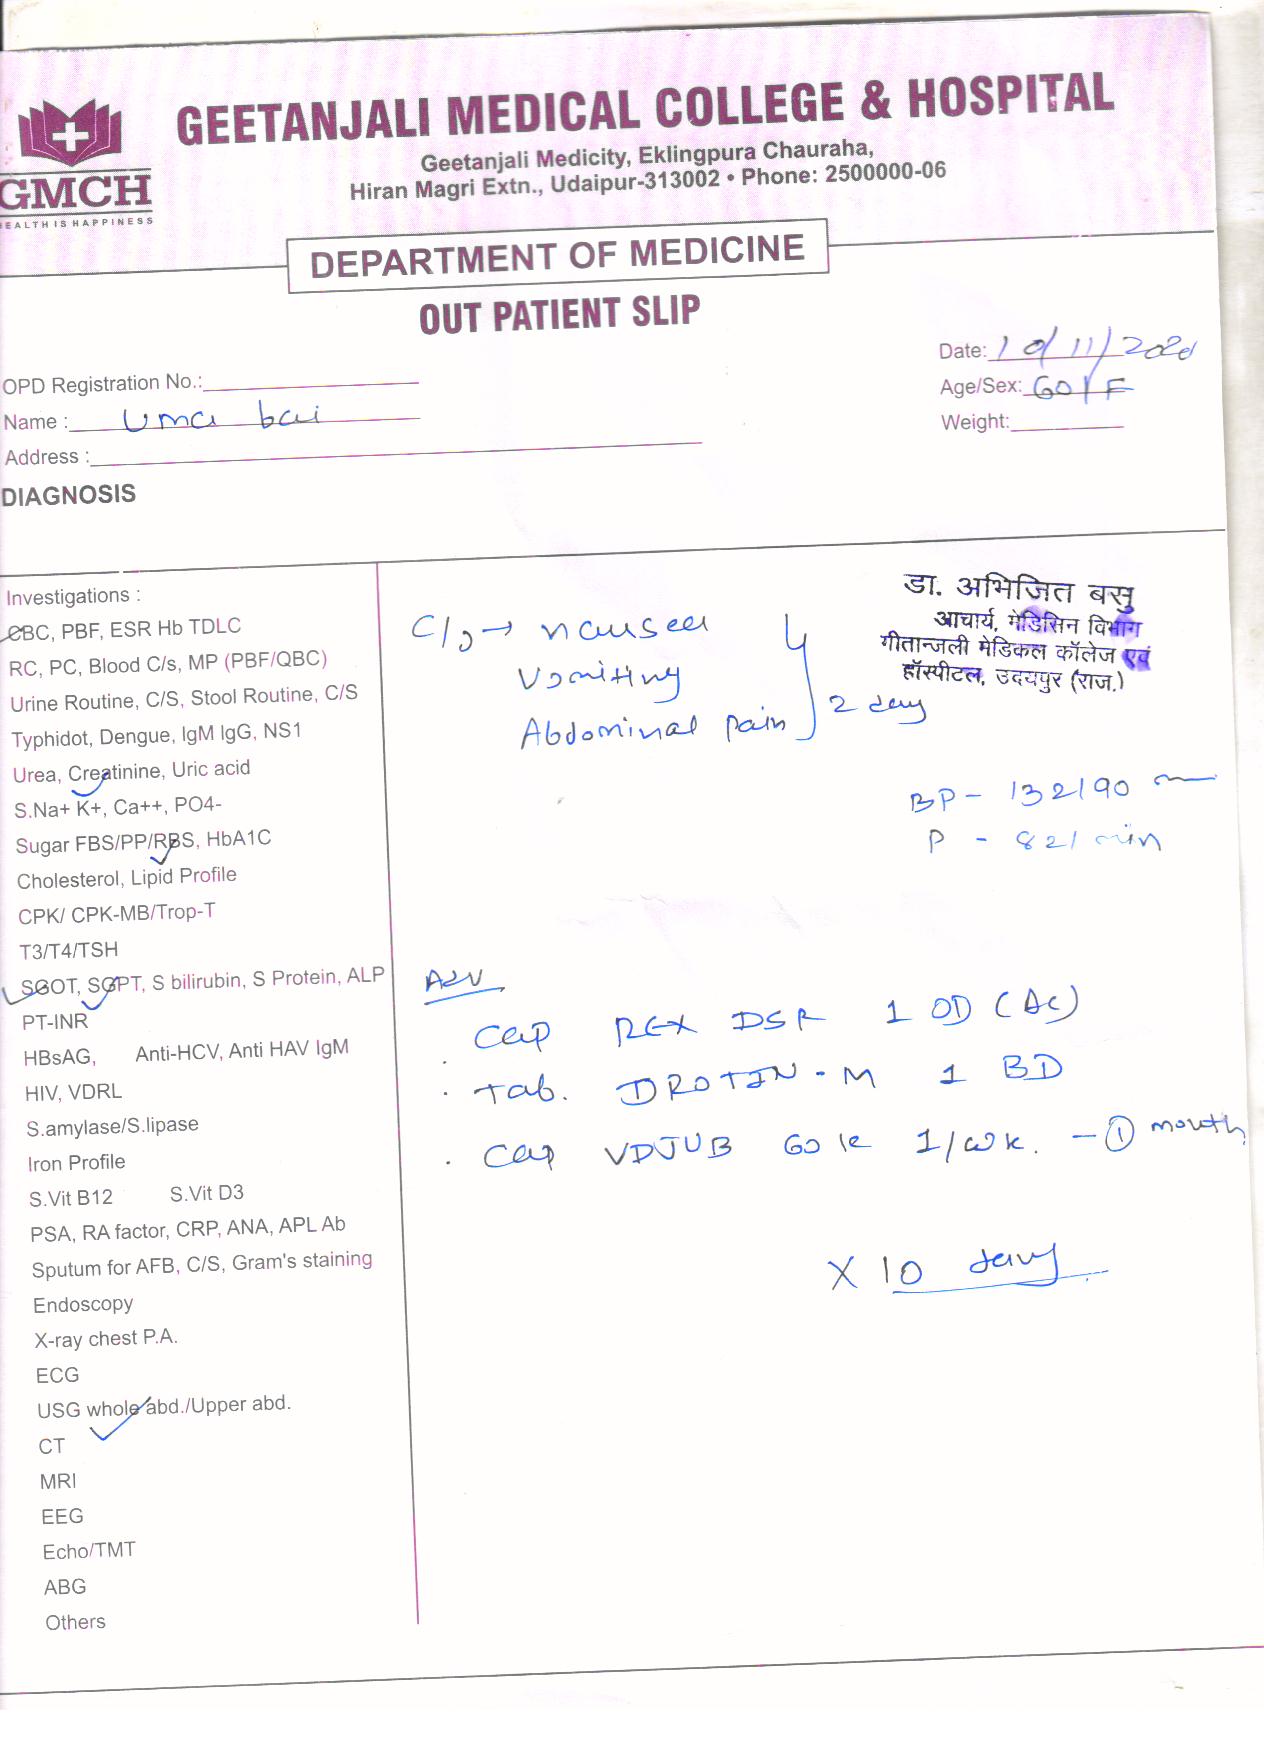 GEETANJALI MEDICAL COLLEGE & HOSPITAL
Geetanjali Medicity, Eklingpura Chauraha,
Hiran Magri Extn., Udaipur-313002 • Phone: 2500000-06
GMCH
HEALTH IS HAPPINESS
DEPARTMENT OF MEDICINE
OUT PATIENT SLIP
Date: 10/11/2020
OPD Registration No.:
Age/Sex: 60/F
Name : Uma bai
Weight:
Address :
DIAGNOSIS
डा. अभिजित बसु
आचार्य, मेडिसिन विभाग
गीतान्जली मेडिकल कॉलेज एवं
हॉस्पीटल, उदयपुर (राज.)
Investigations :
CBC, PBF, ESR Hb TDLC
RC, PC, Blood C/s, MP (PBF/QBC)
Urine Routine, C/S, Stool Routine, C/S
Typhidot, Dengue, IgM IgG, NS1
Urea, Creatinine, Uric acid
S.Na+ K+, Ca++, PO4-
Sugar FBS/PP/RBS, HbA1C
Cholesterol, Lipid Profile
CPK/ CPK-MB/Trop-T
T3/T4/TSH
SGOT, SGPT, S bilirubin, S Protein, ALP
PT-INR
HBsAG, Anti-HCV, Anti HAV IgM
HIV, VDRL
S.amylase/S.lipase
Iron Profile
S.Vit B12 S.Vit D3
PSA, RA factor, CRP, ANA, APL Ab
Sputum for AFB, C/S, Gram's staining
Endoscopy
X-ray chest P.A.
ECG
USG whole abd./Upper abd.
CT
MRI
EEG
Echo/TMT
ABG
Others
C/o → nausea
Vomiting
Abdominal pain 2 day
BP - 132/90
P - 82/min
Adv
Cap REX DSR 1 OD (AC)
Tab. DROTIN-M 1 BD
Cap VDJUB 60 k 1/wk. - 1 month
X 10 day